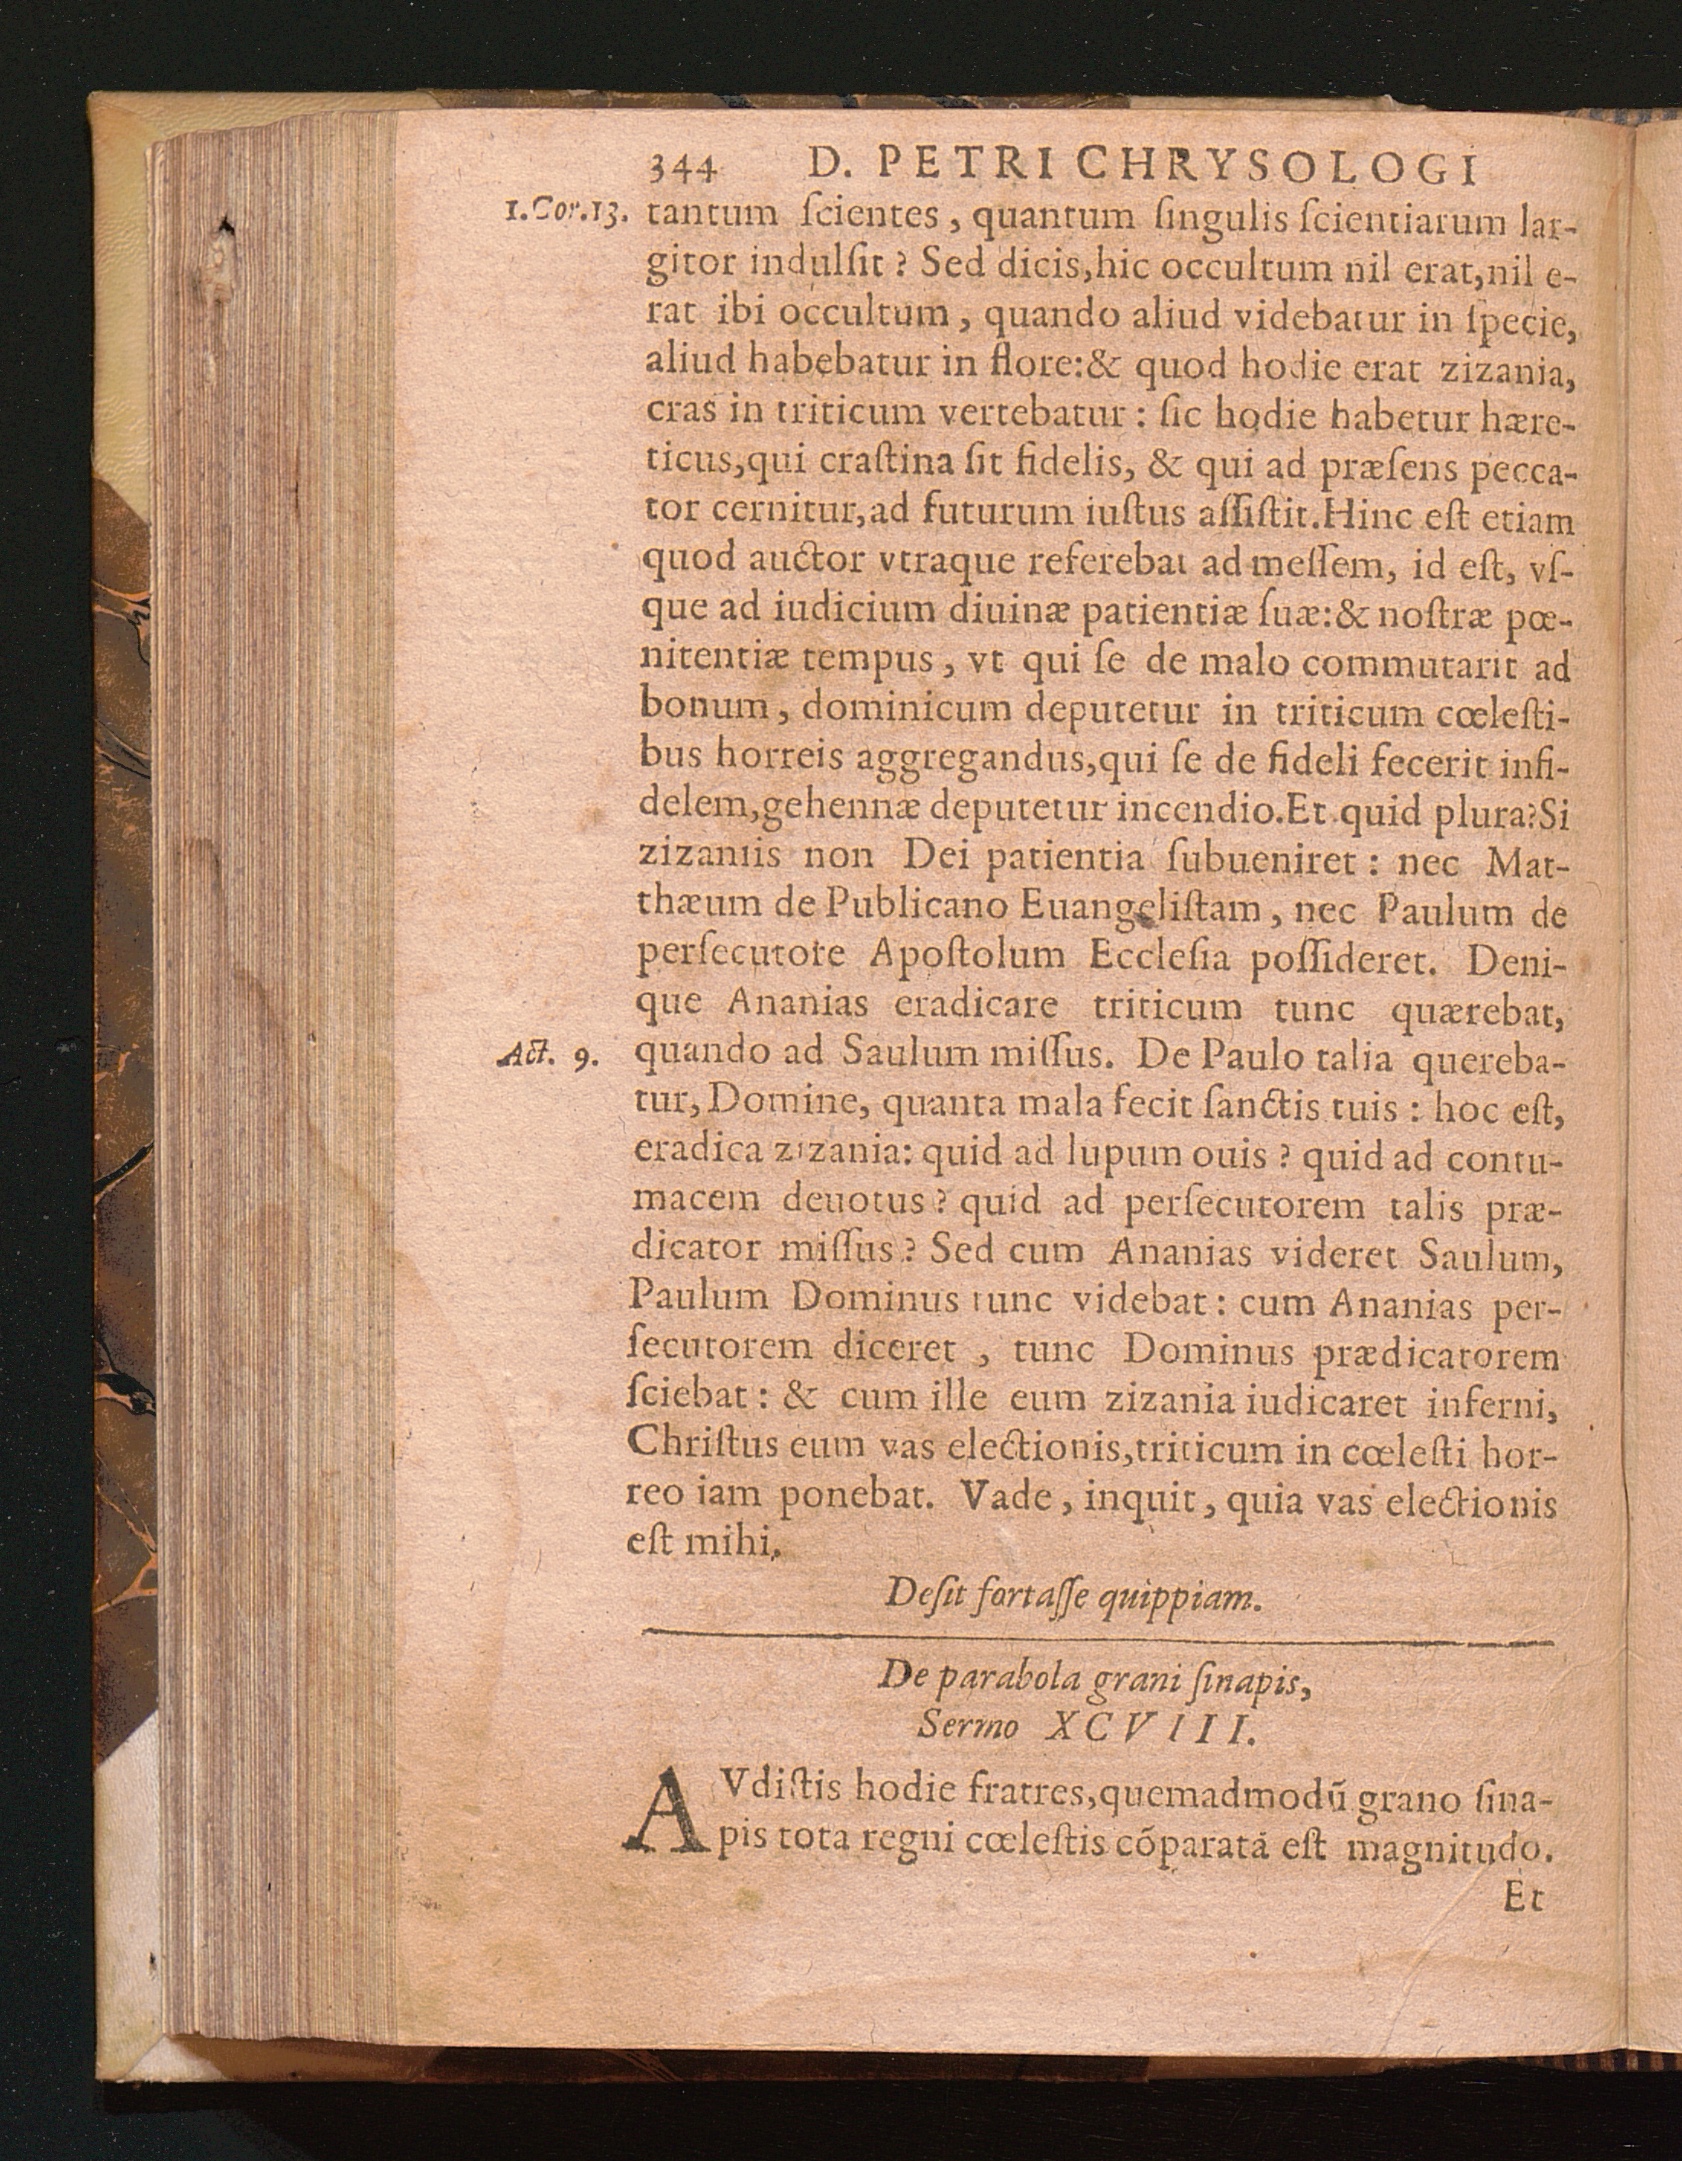 344 D. PETRI CHRYSOLOGI
1.Cor.13. tantum ſcientes, quantum ſingulis ſcientiarum lar-
gitor indulſit? Sed dicis, hic occultum nil erat, nil e-
rat ibi occultum, quando aliud videbatur in ſpecie,
aliud habebatur in flore: & quod hodie erat zizania,
cras in triticum vertebatur: ſic hodie habetur hære-
ticus, qui craſtina ſit fidelis, & qui ad præſens pecca-
tor cernitur, ad futurum iuſtus aſſiſtit. Hinc eſt etiam
quod auctor vtraque referebat ad meſſem, id eſt, vſ-
que ad iudicium diuinæ patientiæ ſuæ: & noſtræ pœ-
nitentiæ tempus, vt qui ſe de malo commutarit ad
bonum, dominicum deputetur in triticum cœleſti-
bus horreis aggregandus, qui ſe de fideli fecerit infi-
delem, gehennæ deputetur incendio. Et quid plura? Si
zizaniis non Dei patientia ſubueniret: nec Mat-
thæum de Publicano Euangeliſtam, nec Paulum de
perſecutore Apoſtolum Eccleſia poſſideret. Deni-
que Ananias eradicare triticum tunc quærebat,
Act. 9. quando ad Saulum miſſus. De Paulo talia quereba-
tur, Domine, quanta mala fecit ſanctis tuis: hoc eſt,
eradica zizania: quid ad lupum ouis? quid ad contu-
macem deuotus? quid ad perſecutorem talis præ-
dicator miſſus? Sed cum Ananias videret Saulum,
Paulum Dominus tunc videbat: cum Ananias per-
ſecutorem diceret, tunc Dominus prædicatorem
ſciebat: & cum ille eum zizania iudicaret inferni,
Chriſtus eum vas electionis, triticum in cœleſti hor-
reo iam ponebat. Vade, inquit, quia vas electionis
eſt mihi.
Deſit fortaſſe quippiam.
De parabola grani ſinapis,
Sermo XCVIII.
AVdiſtis hodie fratres, quemadmodũ grano ſina-
pis tota regni cœleſtis cõparata eſt magnitudo.
Et